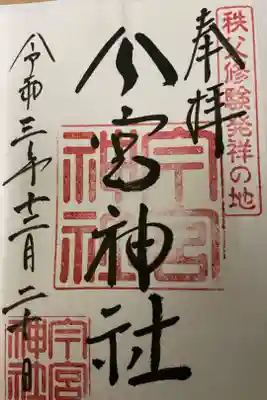 秩父修験発祥の地
奉拝
今宮神社
今宮神社
令和三年十二月二十日
今宮神社